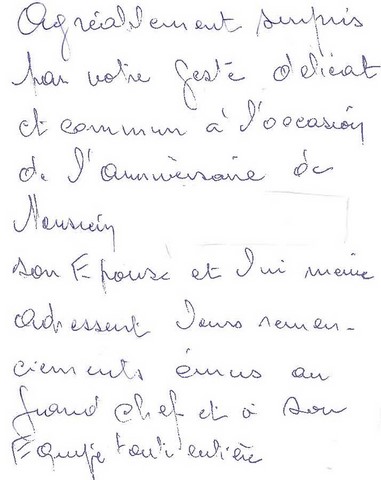 Agréablement surpris
par votre geste délicat
et commun à l'occasion
de l'anniversaire de
Monsieur
son Epouse et lui même
adressent leurs remer-
ciements émus au
grand chef et à son
Equipe tout entière